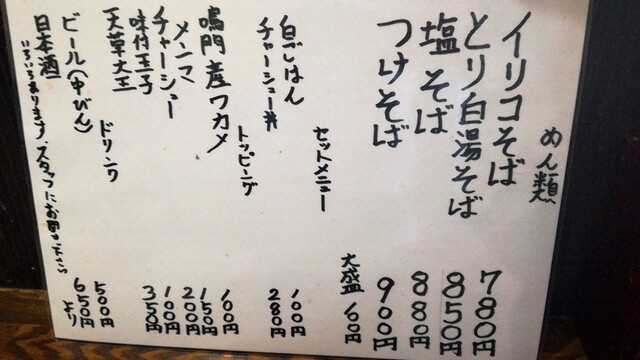 めん類
イリコそば 780円
とり白湯そば 850円
塩そば 880円
つけそば 900円
大盛 100円
セットメニュー
白ごはん 100円
チャーシュー丼 280円
トッピング
鳴門産ワカメ 100円
メンマ 150円
チャーシュー 200円
味付玉子 100円
天草大王 350円
ドリンク
ビール(中びん) 500円
日本酒 650円より
いろいろあります、スタッフにお聞き下さい